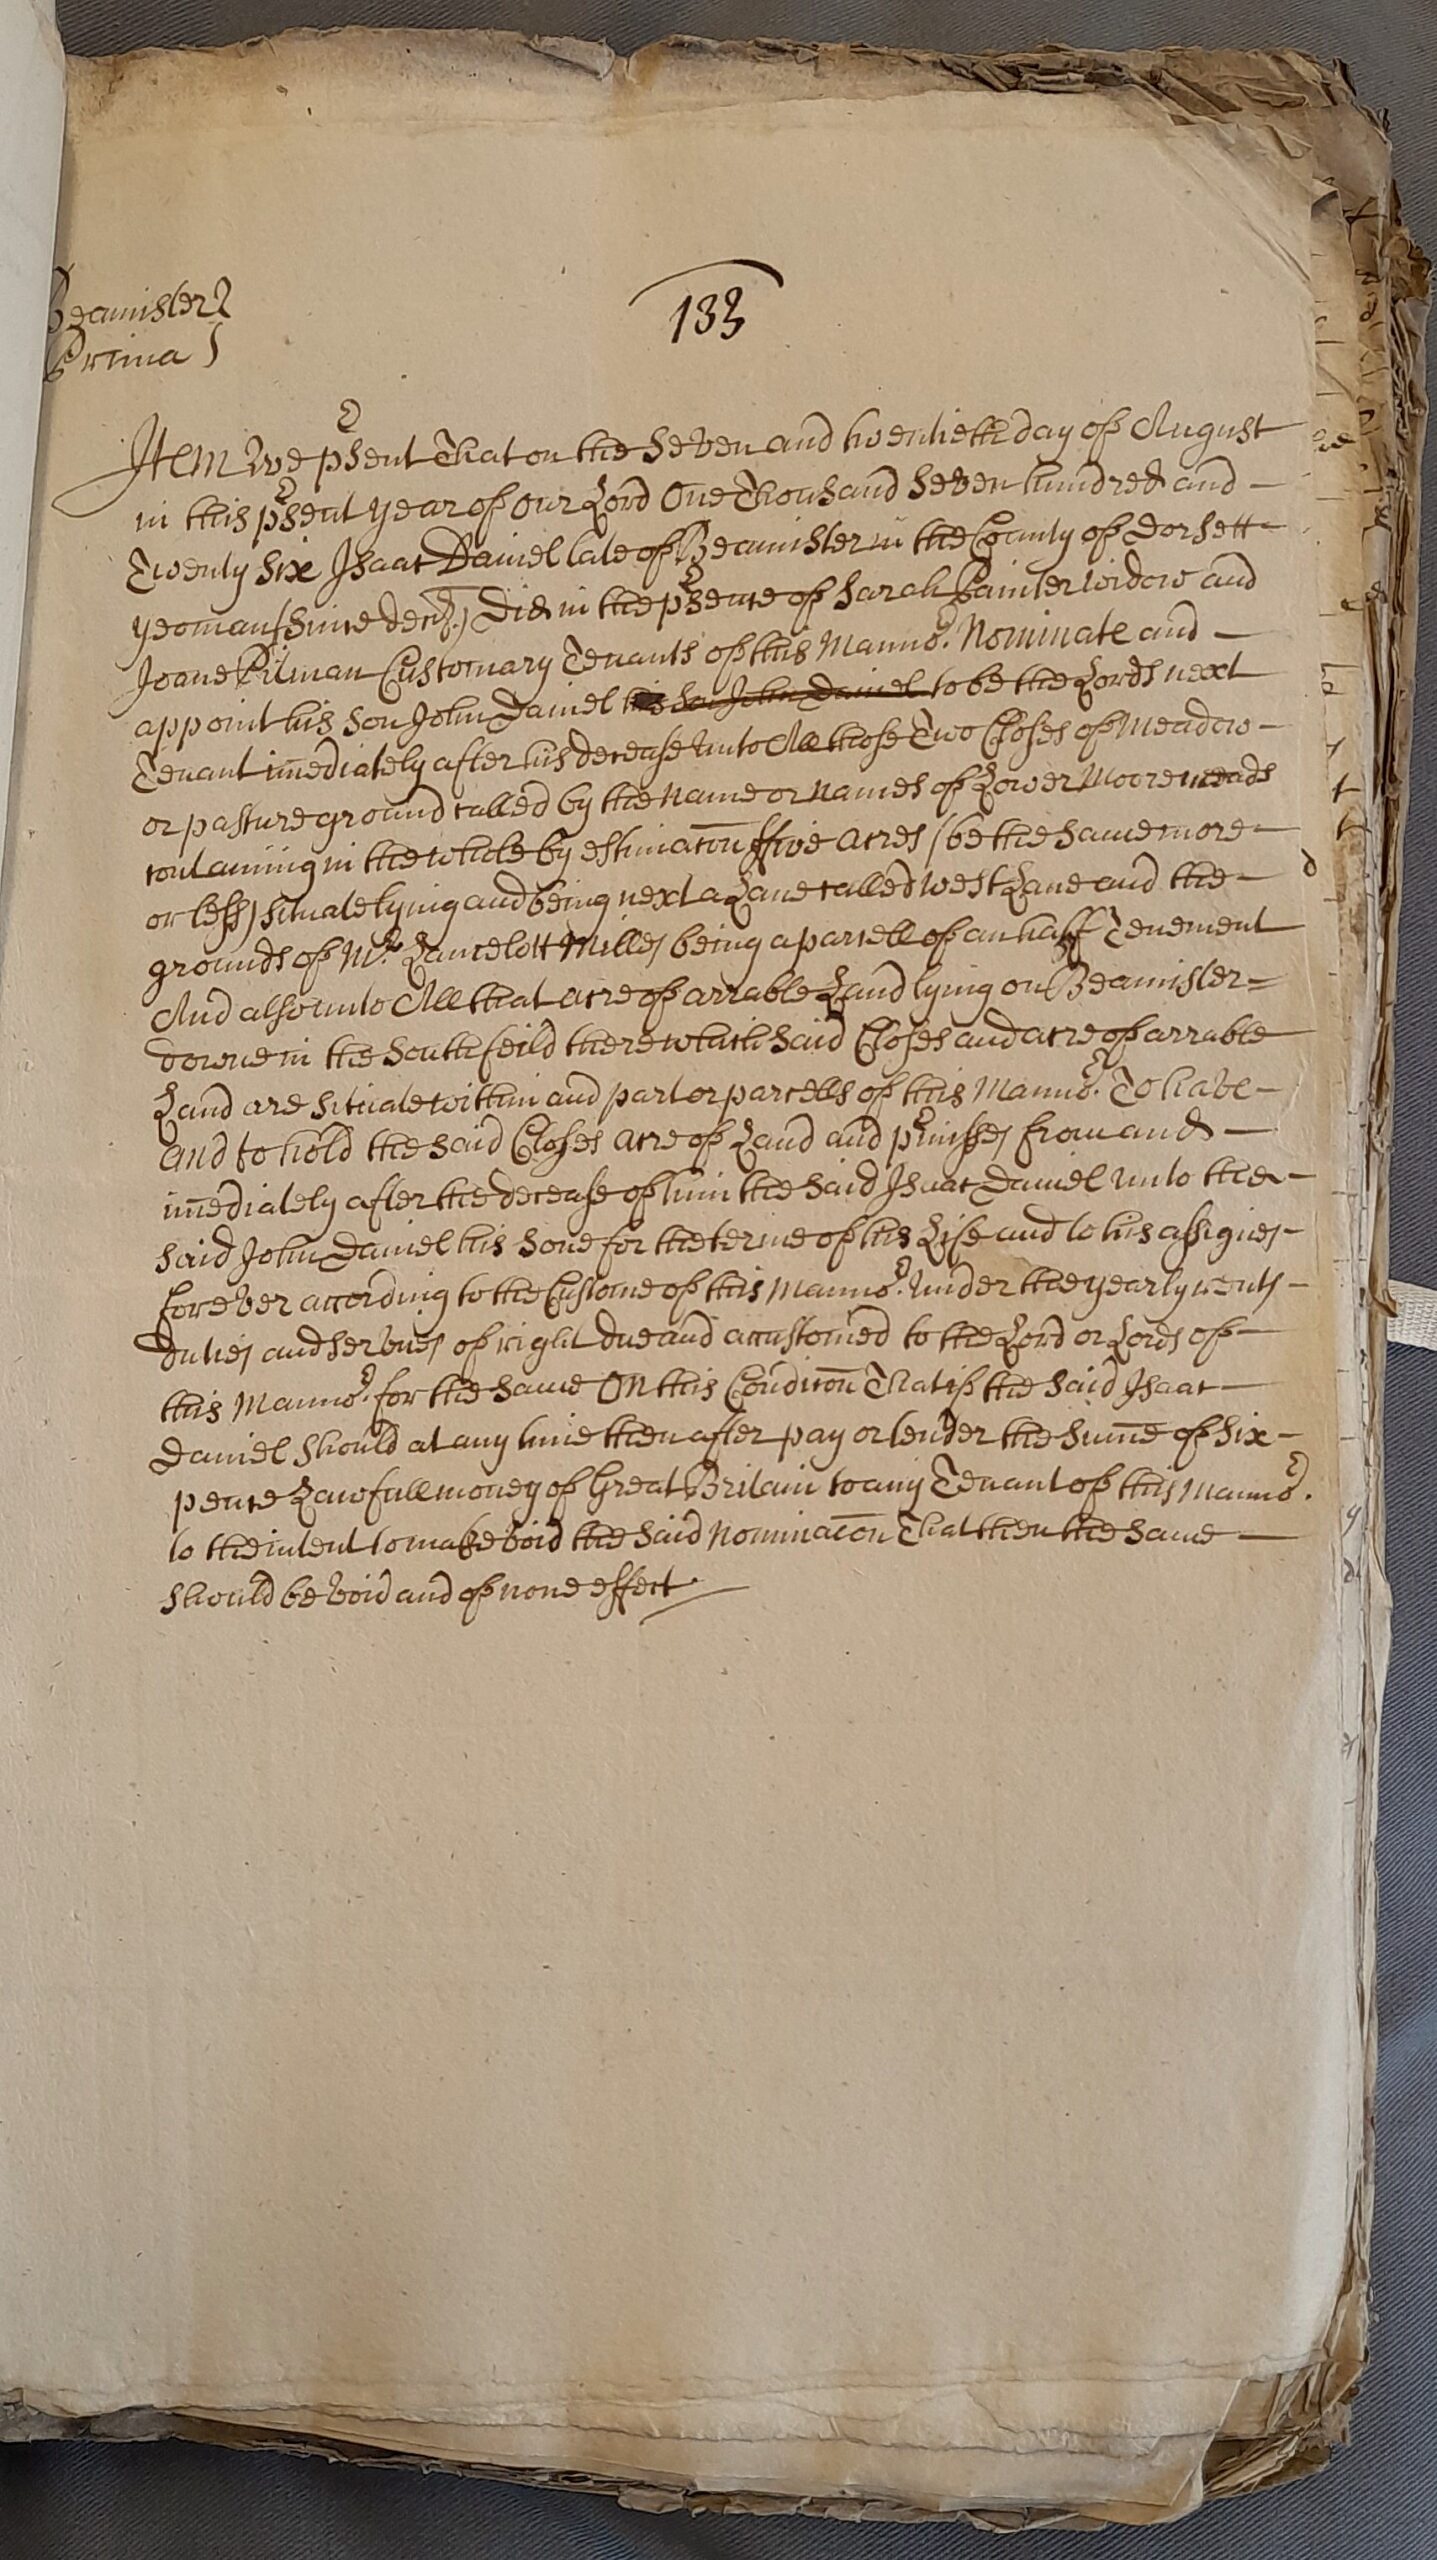 133
Beamister
Prima
Item Wee p'sent That on the Seven and twentieth day of August
in this p'sent year of our Lord One Thousand Seven hundred and
Twenty six Isaac Daniel late of Beamister in the County of Dorsett
yeoman (since dec'ed.) Did in the p'sence of Sarah Painter widow and
Joane Pitman Customary Tenants of this Manno'r. Nominate and
appoint his Son John Daniel his son John Daniel to be the Lords next
Tenant im̅ediately after his decease Unto All those Two Closes of Meadow
or pasture ground called by the name or names of Lower Mooremeads
containing in the whole by estimac̅on ffive Acres (be the same more
or less) situate lying and being next a Lane called West Lane and the
grounds of Mr. Lancelott Milles being a parcell of an half Tenement
And also unto All that acre of arrable Land lying on Beamister=
downe in the South feild there which said Closes and acre of arrable
Land are situate within and part or parcells of this Manno'r. To have
and to hold the said Closes acre of Land and p'misses from and
im̅ediately after the decease of him the said Isaac Daniel unto the
said John Daniel his sone for the terme of his Life and to his assignes
forever according to the Custome of this Manno'r. Under the yearly rents
duties and services of right due and accustomed to the Lord or Lords of
this Manno'r. for the same On this Condic̅on That if the said Isaac
Daniel should at any time then after pay or tender the sum̅e of six
pence Lawfull money of Great Britain to any Tenant of this Manno'r.
to the intent to make void the said Nominac̅on That then the same
should be void and of none effect.